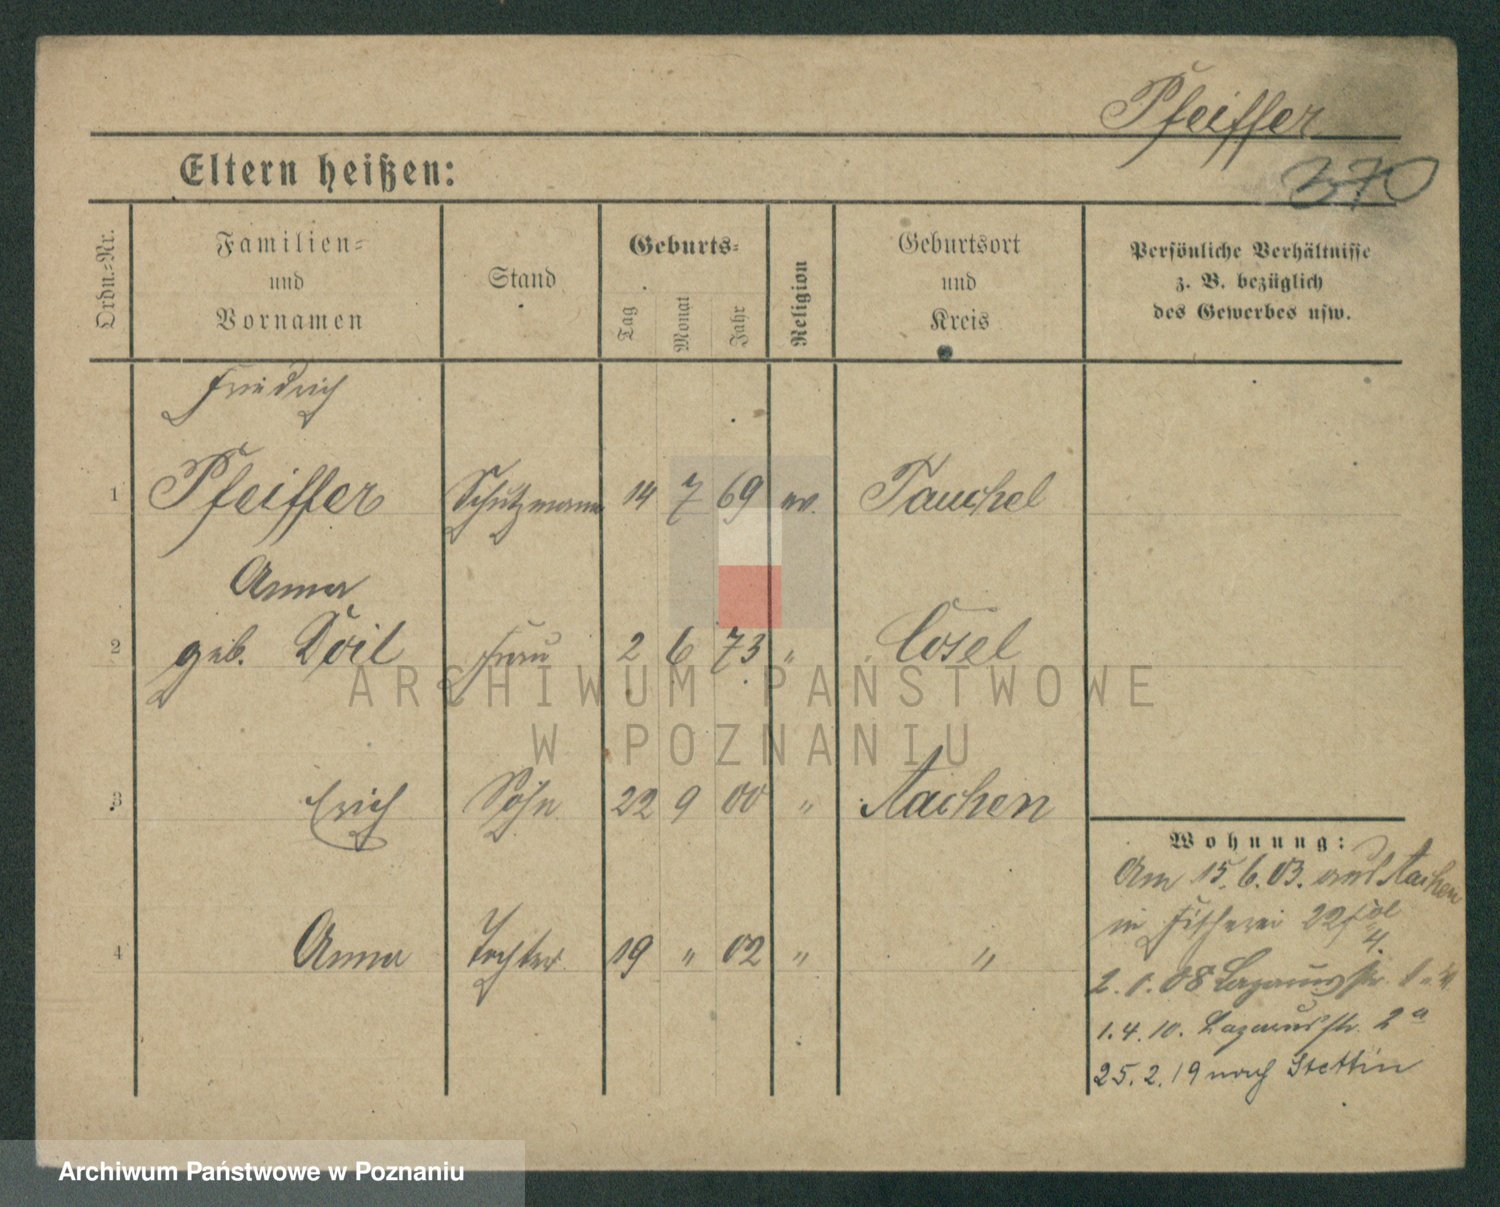 Pfeiffer
370
Eltern heißen:
Ordn.-Nr.
Familien-
und
Vornamen
Stand
Geburts-
Tag
Monat
Jahr
Religion
Geburtsort
und
Kreis
Persönliche Verhältnisse
z. B. bezüglich
des Gewerbes usw.
Friedrich
1 Pfeiffer Schutzmann 14 7 69 ev. Tauchel
Anna
2 geb. Doil Frau 2 6 73 " Cosel
3 Erich Sohn 22 9 00 " Aachen
4 Anna Tochter 19 " 02 " "
Wohnung:
Am 15.6.03. aus Aachen
in Fischerei 22
4.
2.1.08 Lazarusstr.
1.4.10. Lazarusstr. 2a
25.2.19 nach Stettin
ARCHIWUM PAŃSTWOWE
W POZNANIU
Archiwum Państwowe w Poznaniu